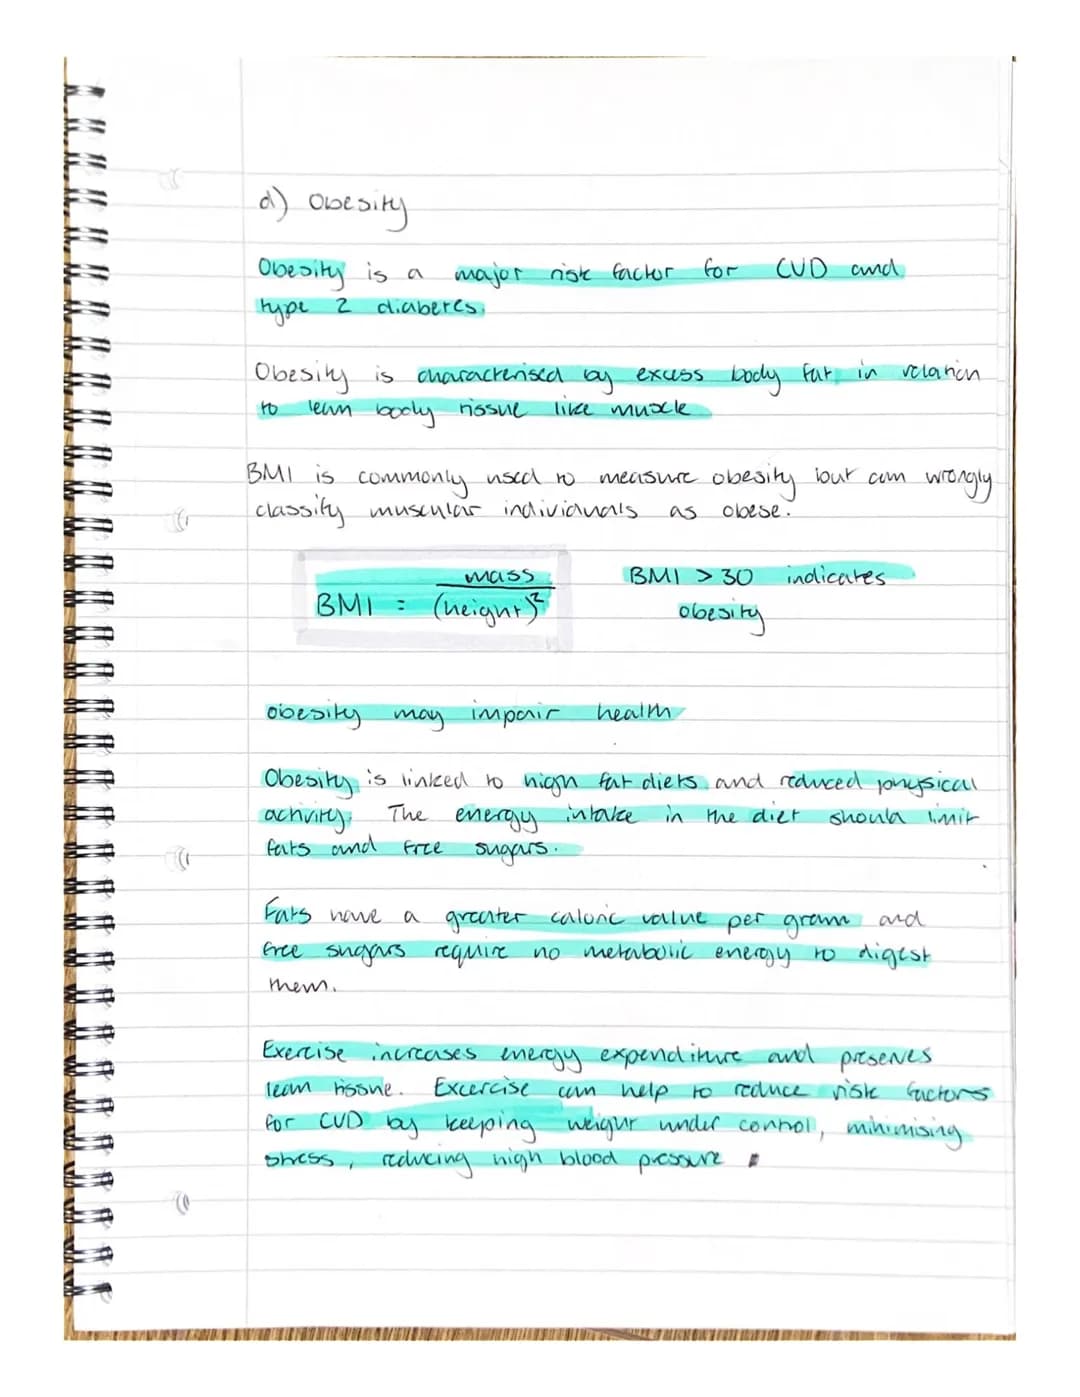 d) Obesity
Obesity is a major risk factor for CVD and
type 2 diabetes.
Obesity is characterised by excess body fat in relation
to lean body tissue like muscle
BMI is commonly used to measure obesity but can wrongly
classify muscular individuals as obese.
BMI = mass / (height)² BMI > 30 indicates
obesity
obesity may impair health
Obesity is linked to high fat diets and reduced physical
activity. The energy intake in the diet should limit
fats and free sugars.
Fats have a greater caloric value per gram and
free sugars require no metabolic energy to digest
them.
Exercise increases energy expenditure and preserves
lean tissue. Excercise can help to reduce risk factors
for CVD by keeping weight under control, minimising
stress, reducing high blood pressure